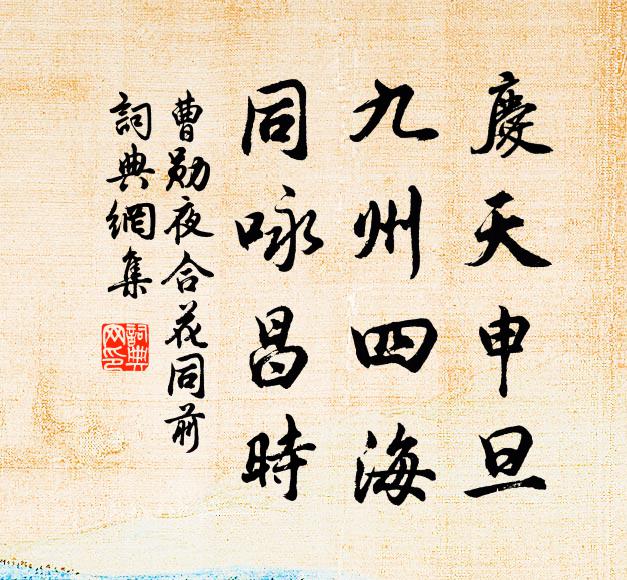 慶天申旦
九州四海
同咏昌時
曹勛夜合花同前
詞典網集
詞典网印